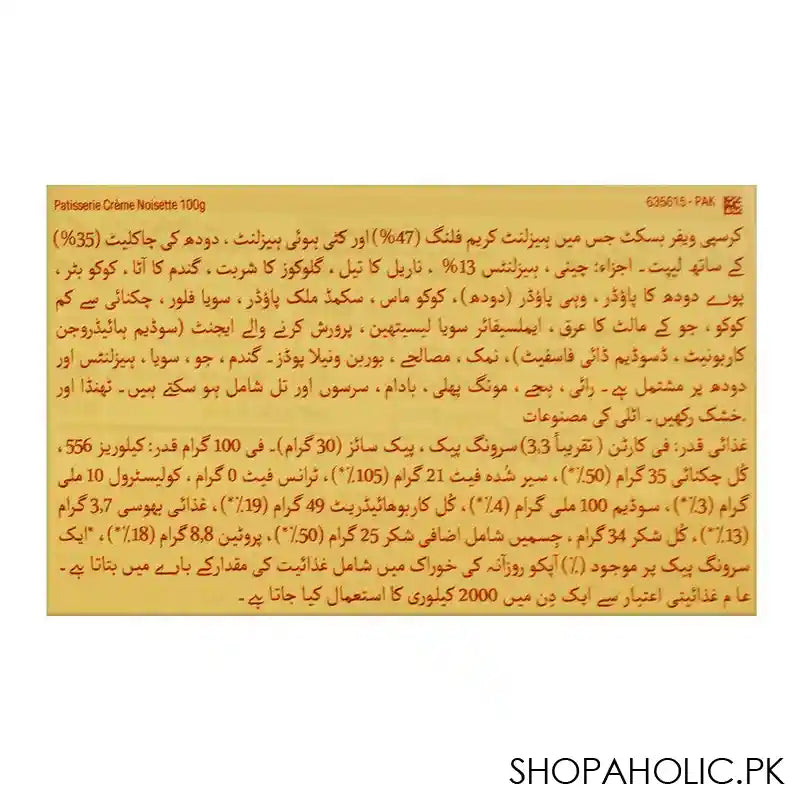 Patisserie Crème Noisette 100g
635615 - PAK
کرسپی ویفر بسکٹ جس میں ہیزلنٹ کریم فلنگ (47%) اور کٹی ہوئی ہیزلنٹ ، دودھ کی چاکلیٹ (35%)
کے ساتھ لیپت۔ اجزاء: چینی ، ہیزلنٹس 13% ، ناریل کا تیل ، گلوکوز کا شربت ، گندم کا آٹا ، کوکو بٹر ،
پورے دودھ کا پاؤڈر ، وہی پاؤڈر (دودھ)، کوکو ماس ، سکمڈ ملک پاؤڈر ، سویا فلور ، چکنائی سے کم
کوکو ، جو کے مالٹ کا عرق ، ایملسیفائر سویا لیسیتھین ، پرورش کرنے والے ایجنٹ (سوڈیم ہائیڈروجن
کاربونیٹ ، ڈسوڈیم ڈائی فاسفیٹ)، نمک ، مصالحے ، بوربن ونیلا پوڈز۔ گندم ، جو ، سویا ، ہیزلنٹس اور
دودھ پر مشتمل ہے۔ رائی ، ہجے ، مونگ پھلی ، بادام ، سرسوں اور تل شامل ہو سکتے ہیں۔ ٹھنڈا اور
.خشک رکھیں۔ اٹلی کی مصنوعات
غذائی قدر: فی کارٹن ( تقریباً 3,3) سرونگ پیک ، پیک سائز (30 گرام)۔ فی 100 گرام قدر: کیلوریز 556 ،
کُل چکنائی 35 گرام (50٪*) ، سیر شُدہ فیٹ 21 گرام (105٪*)، ٹرانس فیٹ 0 گرام ، کولیسٹرول 10 ملی
گرام (3٪*) ، سوڈیم 100 ملی گرام (4٪*)، کُل کاربوہائیڈریٹ 49 گرام (19٪*)، غذائی بھوسی 3,7 گرام
(13٪*)، کُل شکر 34 گرام ، جِسمیں شامل اضافی شکر 25 گرام (50٪*)، پروٹین 8,8 گرام (18٪*) ، *ایک
سرونگ پیک پر موجود (٪) آپکو روزآنہ کی خوراک میں شامل غذائیت کی مقدارکے بارے میں بتاتا ہے۔
عا م غذائیتی اعتبار سے ایک دِن میں 2000 کیلوری کا استعمال کیا جاتا ہے۔
SHOPAHOLIC.PK